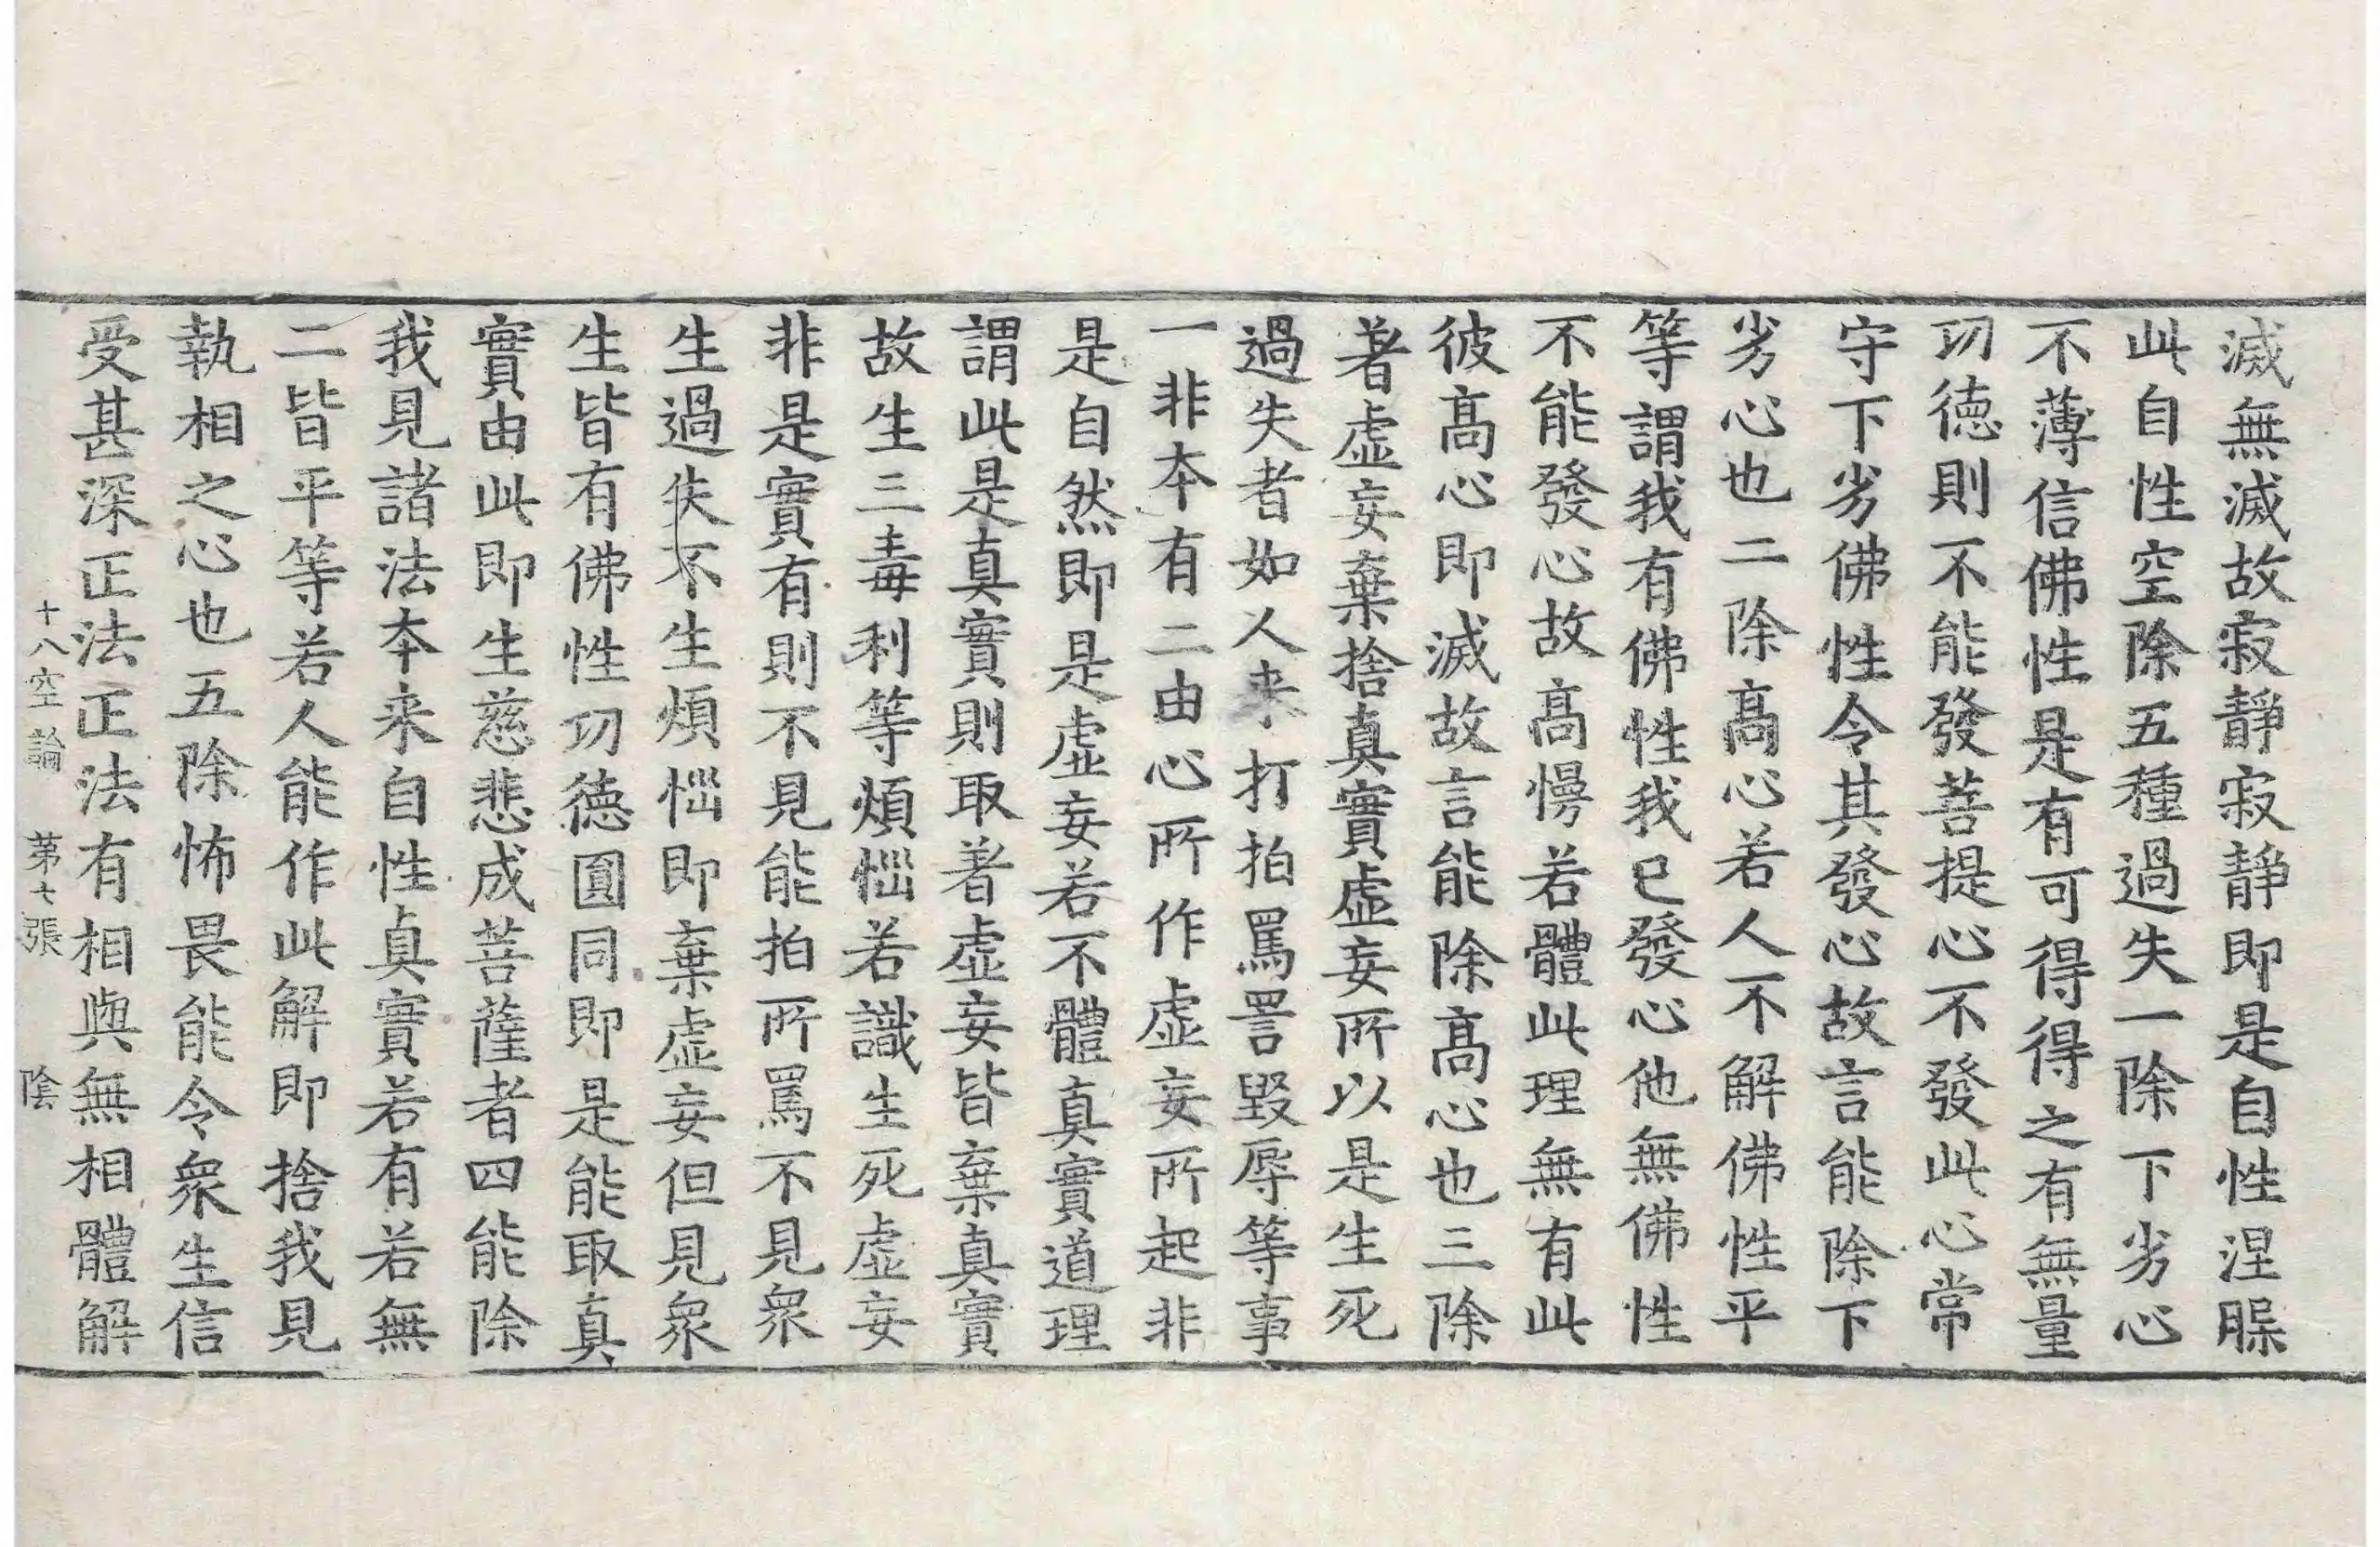 滅無滅故寂靜寂靜即是自性涅槃
此自性空除五種過失一除下劣心
不薄信佛性是有可得得之有無量
功德則不能發菩提心不發此心常
守下劣佛性令其發心故言能除下
劣心也二除髙心若人不解佛性平
等謂我有佛性我已發心他無佛性
不能發心故髙慢若體此理無有此
彼髙心即滅故言能除髙心也三除
著虛妄棄捨真實虛妄所以是生死
過失者如人来打拍罵詈毀辱等事
一非本有二由心所作虛妄所起非
是自然即是虛妄若不體真實道理
謂此是真實則取著虛妄皆棄真實
故生三毒利等煩惱若識生死虛妄
非是實有則不見能拍所罵不見衆
生過失不生煩惱即棄虛妄但見衆
生皆有佛性功德圓同即是能取真
實由此即生慈悲成菩薩者四能除
我見諸法本来自性真實若有若無
二皆平等若人能作此解即捨我見
執相之心也五除怖畏能令衆生信
受甚深正法正法有相與無相體解
十八空論 第七張 陰